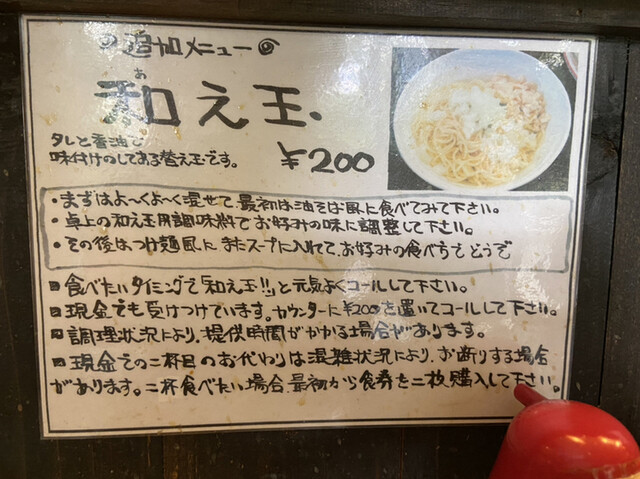 追加メニュー
あ
和え玉、
タレと香油で
味付けのしてある替え玉です。
¥200
・まずはよ〜くよ〜く混ぜて、最初は油そば風に食べてみて下さい。
・卓上の和え玉用調味料でお好みの味に調整して下さい。
・その後は、つけ麺風に、またスープに入れて、お好みの食べ方でどうぞ
食べたいタイミングで「和え玉!!」と元気よくコールして下さい。
現金でも受けつけています。カウンターに¥200を置いてコールして下さい。
調理状況により、提供時間がかかる場合があります。
現金での二杯目のお代わりは混雑状況により、お断りする場合
があります。二杯食べたい場合、最初から食券を二枚購入して下さい。